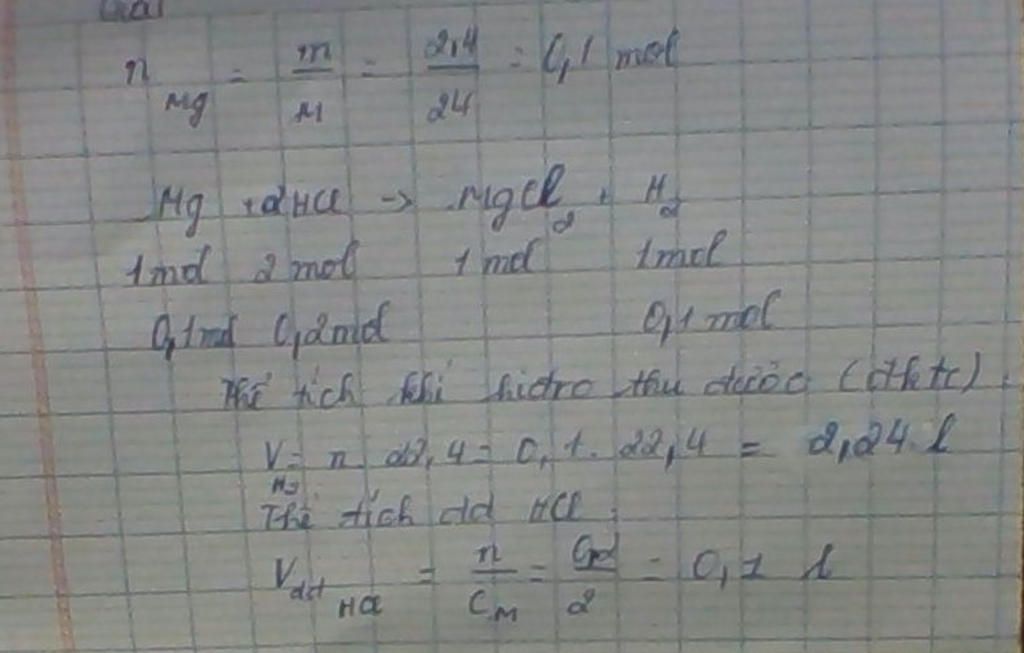 Giải
n Mg = m/M = 2,4/24 = 0,1 mol
Mg + 2HCl → MgCl2 + H2
1mol 2 mol 1 mol 1mol
0,1mol 0,2mol 0,1 mol
Thể tích khí hidro thu được (đktc)
V H2 = n. 22,4 = 0,1. 22,4 = 2,24 l
Thể tích dd HCl
Vdd HCl = n/CM = 0,2/2 = 0,1 l